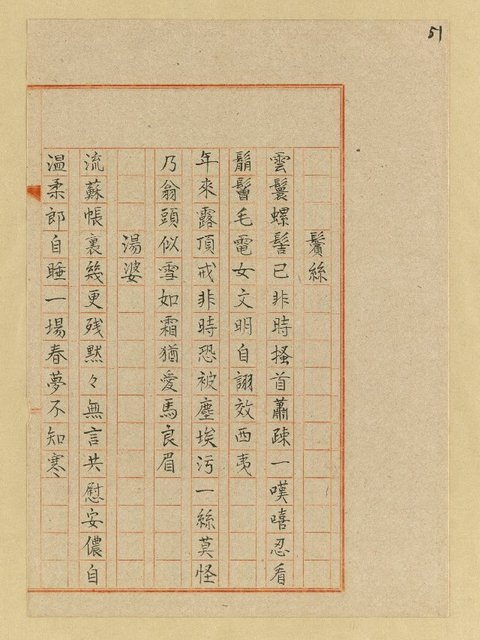 51
鬢絲
雲鬟螺髻已非時搔首蕭疎一嘆嘻忍看
鬅鬙毛電女文明自詡效西夷
年來露頂戒非時恐被塵埃污一絲莫怪
乃翁頭似雪如霜猶愛馬良眉
湯婆
流蘇帳裏幾更残黙々無言共慰安儂自
温柔郎自睡一場春夢不知寒